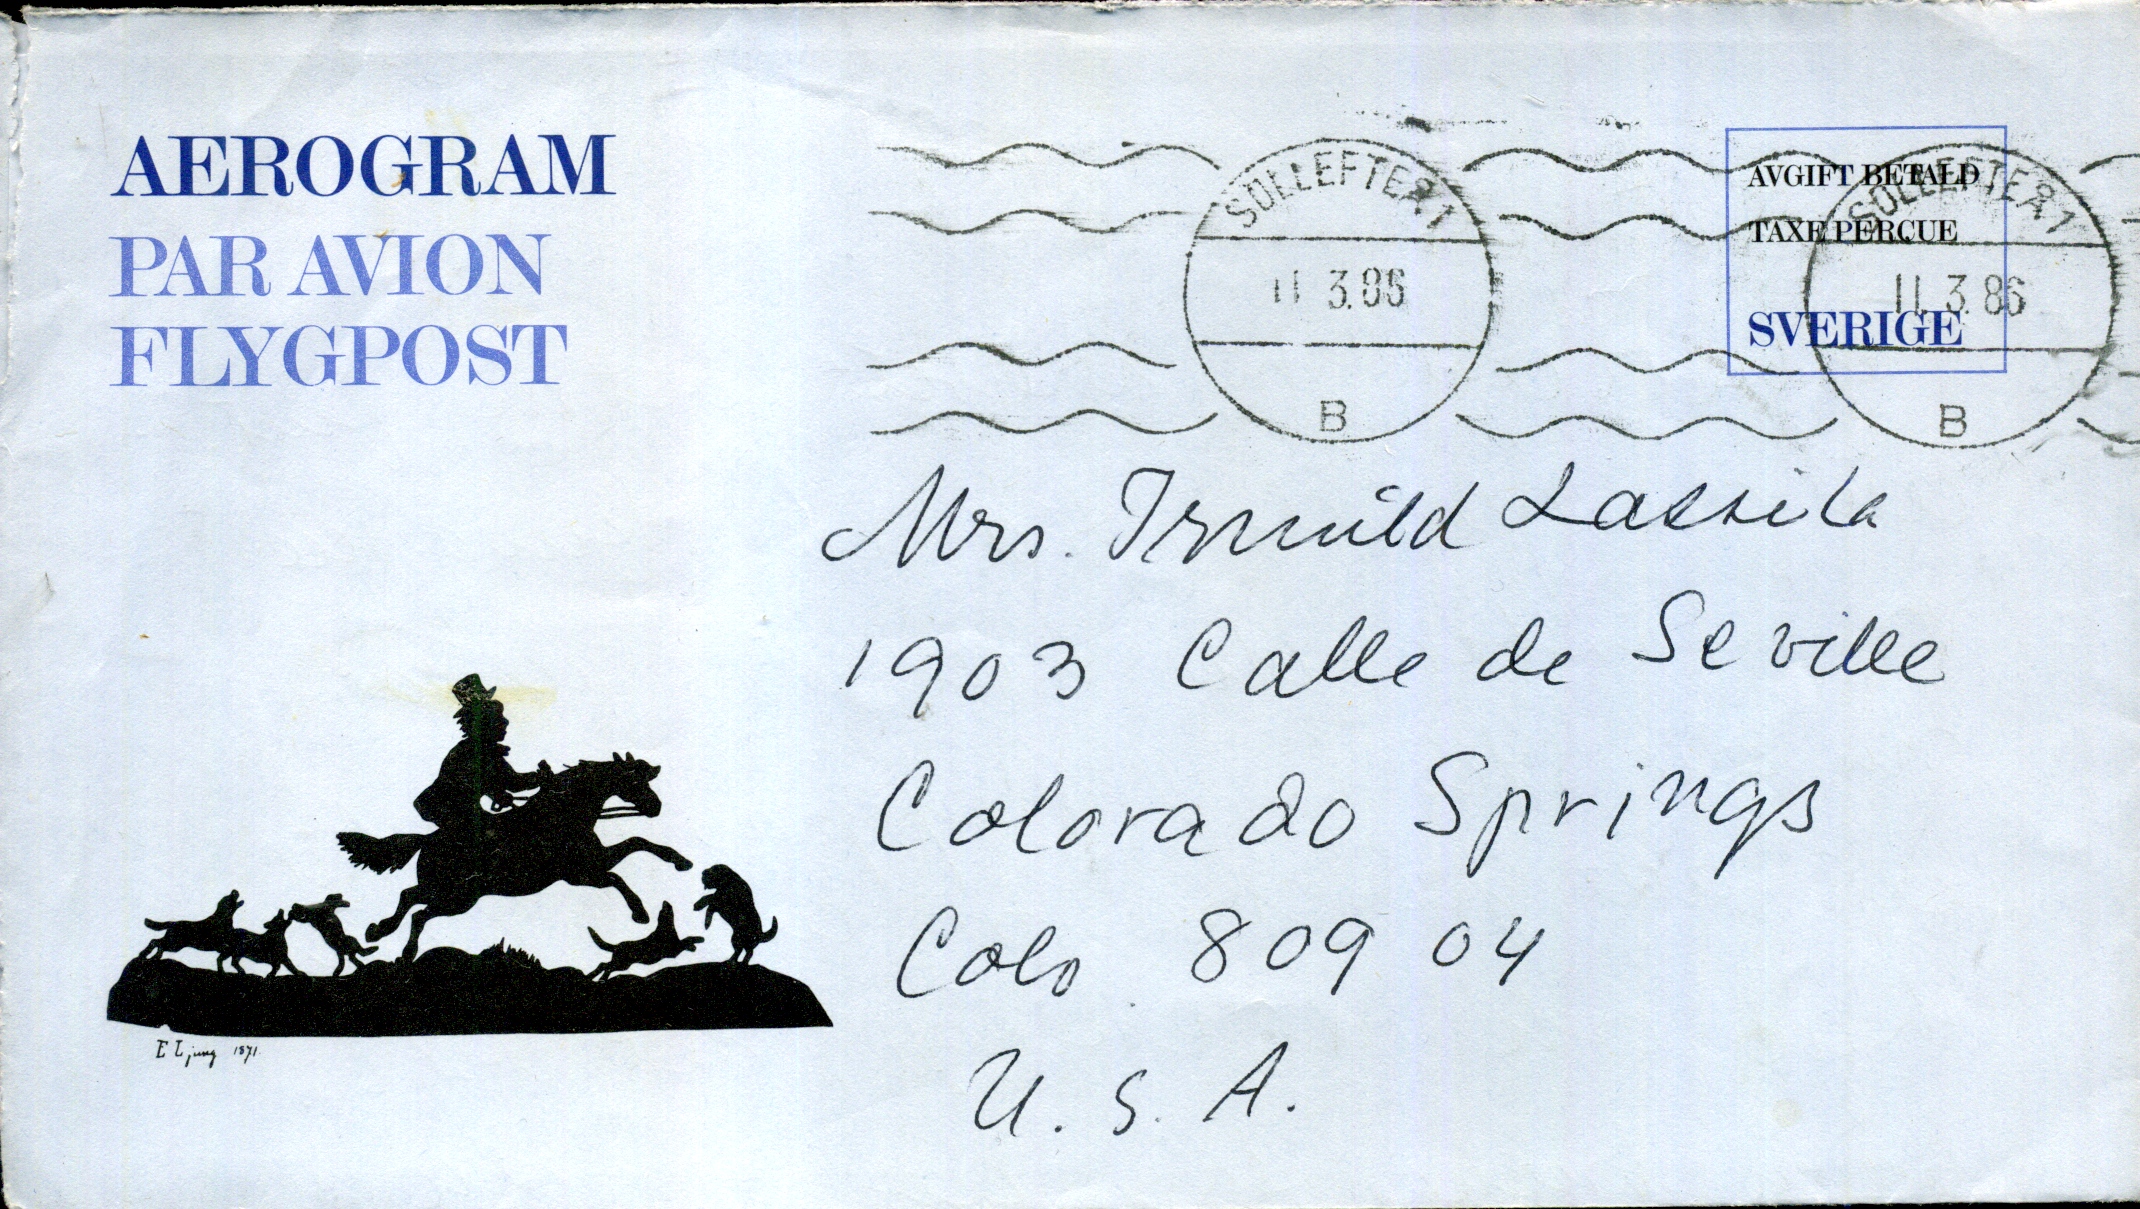 AEROGRAM
PAR AVION
FLYGPOST
SOLLEFTEÅ 1
11 3.86
B
AVGIFT BETALD
TAXE PERÇUE
SVERIGE
SOLLEFTEÅ 1
11.3.86
B
Mrs. Irmild Lassila
1903 Calle de Seville
Colorado Springs
Colo. 809 04
U. S. A.
E Ljung 1871